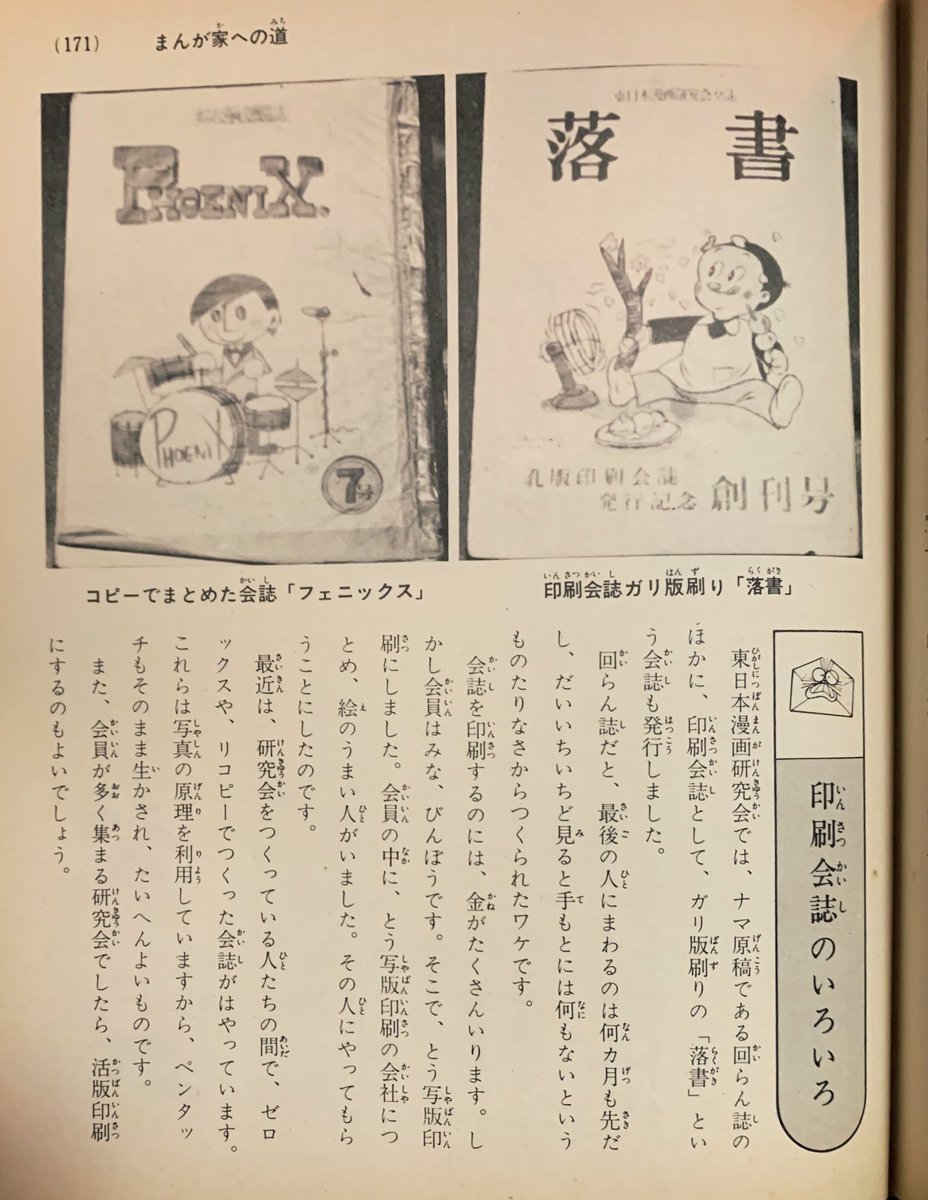 (171)　まんが家への道
東日本漫画研究会会誌
落書
孔版印刷会誌
発行記念 創刊号
PHOENIX.
PHOENIX
印刷会誌ガリ版刷り「落書」
コピーでまとめた会誌「フェニックス」
印刷会誌のいろいろ
東日本漫画研究会では、ナマ原稿である回らん誌の
ほかに、印刷会誌として、ガリ版刷りの「落書」とい
う会誌も発行しました。
回らん誌だと、最後の人にまわるのは何カ月も先だ
し、だいいちいちど見ると手もとには何もないという
ものたりなさからつくられたワケです。
会誌を印刷するのには、金がたくさんいります。し
かし会員はみな、びんぼうです。そこで、とう写版印
刷にしました。会員の中に、とう写版印刷の会社につ
とめ、絵のうまい人がいました。その人にやってもら
うことにしたのです。
最近は、研究会をつくっている人たちの間で、ゼロ
ックスや、リコピーでつくった会誌がはやっています。
これらは写真の原理を利用していますから、ペンタッ
チもそのまま生かされ、たいへんよいものです。
また、会員が多く集まる研究会でしたら、活版印刷
にするのもよいでしょう。